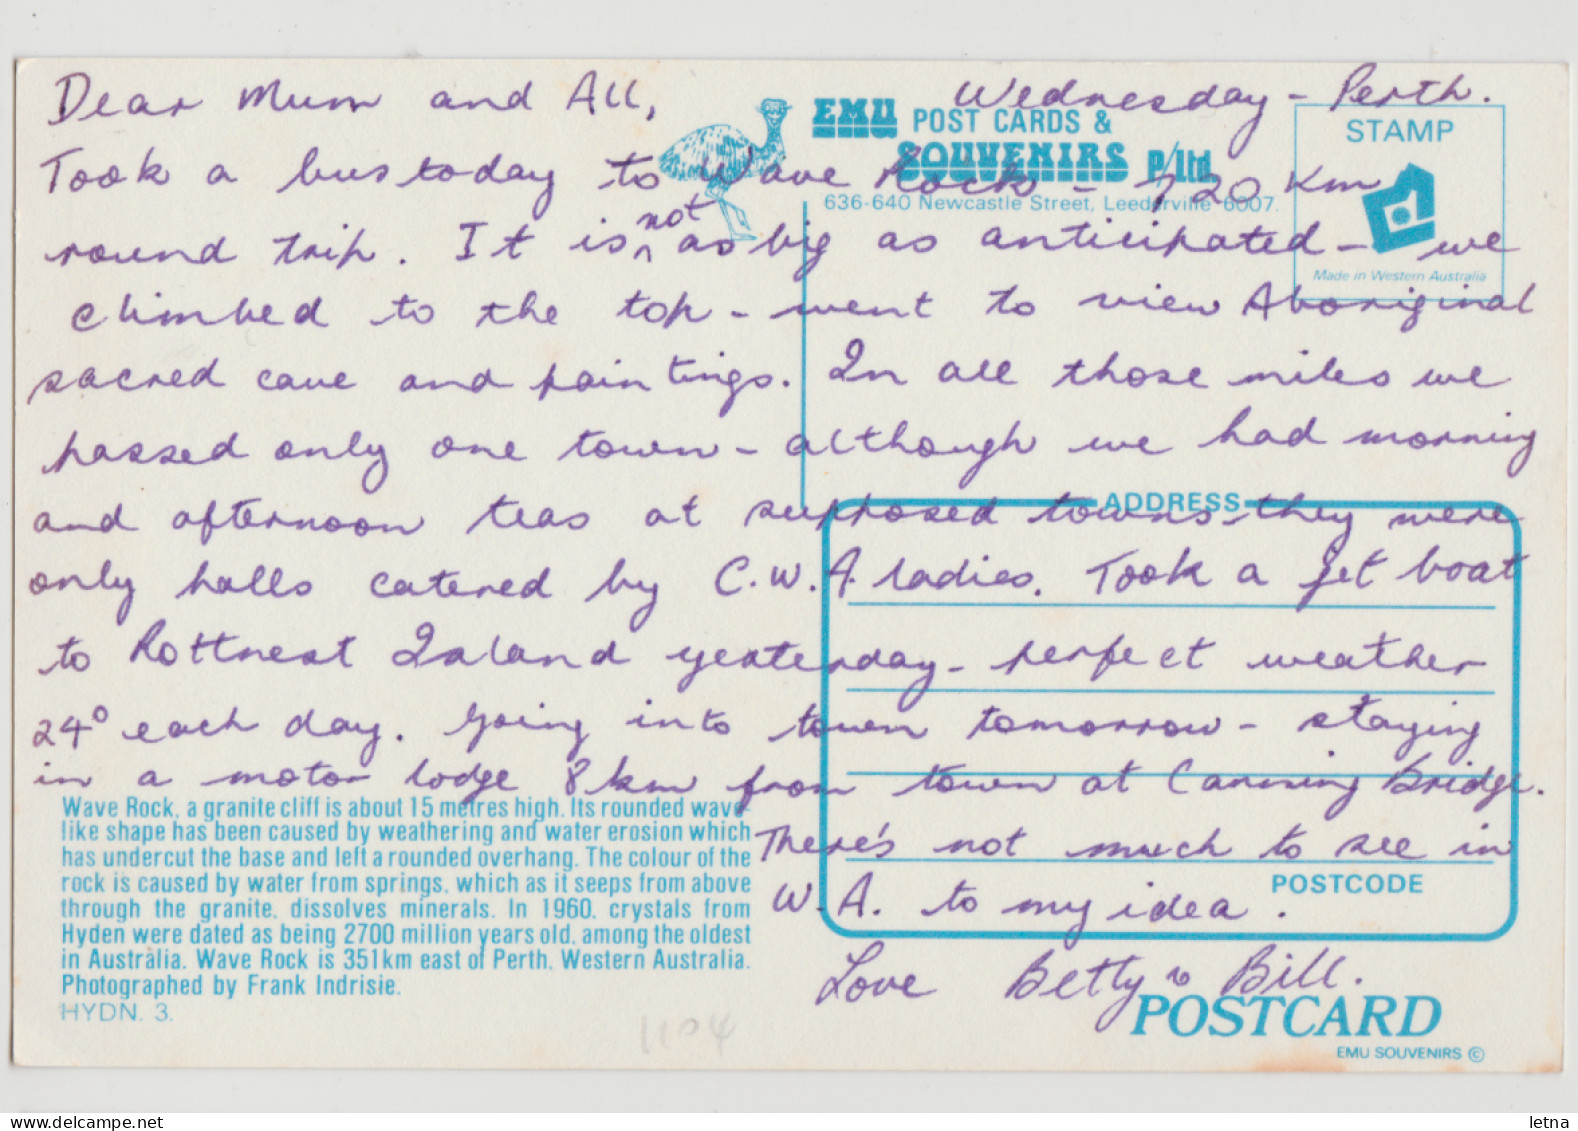 Dear Mum and All, Wednesday - Perth.
EMU POST CARDS &
SOUVENIRS P/Ltd.
636-640 Newcastle Street, Leederville 6007.
STAMP
Made in Western Australia
Took a bus today to Wave Rock - 720 Km
round trip. It is not as big as anticipated - we
climbed to the top - went to view Aboriginal
sacred cave and paintings. In all those miles we
passed only one town - although we had morning
and afternoon teas at supposed towns - they were
ADDRESS
only halls catered by C.W.A. ladies. Took a jet boat
to Rottnest Island yesterday - perfect weather
24° each day. Going into town tomorrow - staying
in a motor lodge 8 km from town at Canning Bridge.
There's not much to see in
W.A. to my idea.
POSTCODE
Love Betty & Bill.
Wave Rock, a granite cliff is about 15 metres high. Its rounded wave-
like shape has been caused by weathering and water erosion which
has undercut the base and left a rounded overhang. The colour of the
rock is caused by water from springs, which as it seeps from above
through the granite, dissolves minerals. In 1960, crystals from
Hyden were dated as being 2700 million years old, among the oldest
in Australia. Wave Rock is 351km east of Perth, Western Australia.
Photographed by Frank Indrisie.
HYDN. 3.
1104
POSTCARD
EMU SOUVENIRS ©
www.delcampe.net
letna